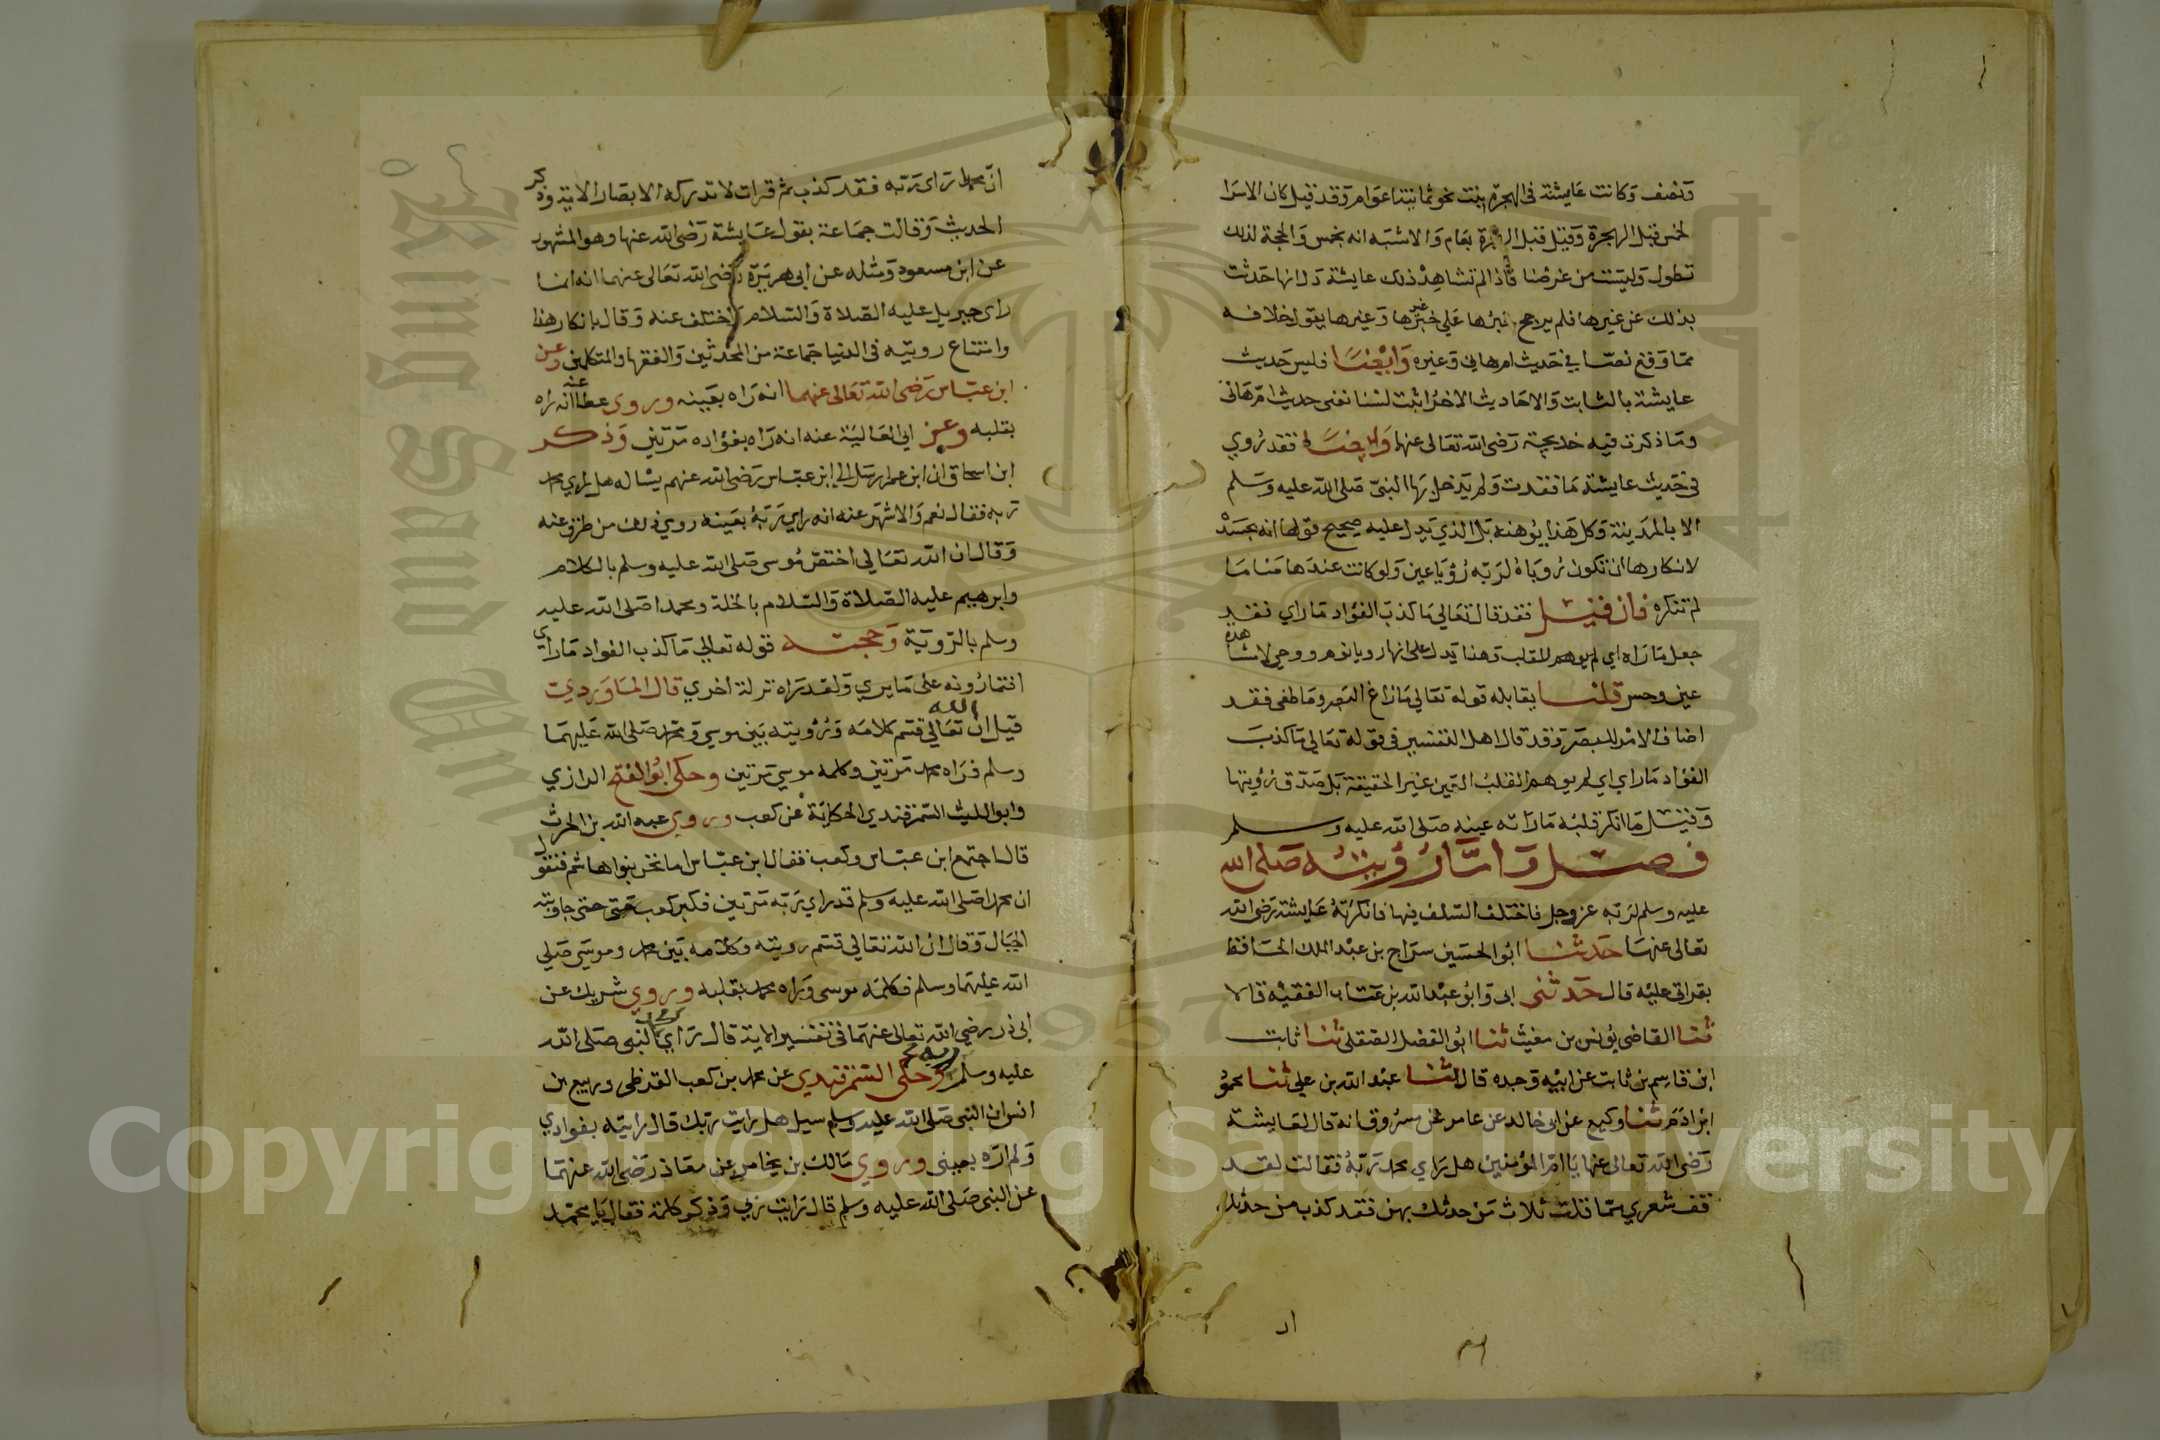 ونصف وكانت عايشة في الهجرة بنت نحو ثمانية اعوام وقد قيل كان الاسرا
لخمس قبل الهجرة وقيل قبل الهجرة بعام والاشبه انه بخمس والحجة لذلك
تطول وليست من غرضنا فاذا لم تشاهد ذلك عايشة دل انها حدثت
بذلك عن غيرها فلم يرجح خبرها على خبر غيرها وغيرها يقول خلافه
مما وقع نصا في حديث ام هاني وغيره وايضا فليس حديث
عايشة بالثابت والاحاديث الاخر اثبت لسنا نعني حديث ام هاني
وما ذكرت فيه خديجة رضى الله تعالى عنها وايضا فقد روي
في حديث عايشة ما فقدت ولم يدخل بها النبي صلى الله عليه وسلم
الا بالمدينة وكل هذا يوهنه بل الذي يدل عليه صحيح قولها انه بجسد
لانكارها ان تكون روياه لربه رؤيا عين ولو كانت عندها مناما
لم تنكره فان قيل فقد قال تعالى ما كذب الفؤاد ما راي فقد
جعل ما راه اي لم يوهم القلب وهذا يدل على انها رويا نوم ووحي لا مشاهدة
عين وحس قلنا يقابله قوله تعالى ما زاغ البصر وما طغى فقد
اضاف الامر للبصر وقد قال اهل التفسير في قوله تعالى ما كذب
الفؤاد ما راي اي لم يوهم القلب العين غير الحقيقة بل صدق رؤيتها
وقيل ما انكر قلبه ما راته عينه صلى الله عليه وسلم
فصل واما رؤيته صلى الله
عليه وسلم لربه عز وجل فاختلف السلف فيها فانكرته عايشة رضى الله
تعالى عنها حدثنا ابو الحسين سراج بن عبد الملك الحافظ
بقراتي عليه قال حدثني ابي وابو عبد الله بن عتاب الفقيه قالا
ثنا القاضى يونس بن مغيث ثنا ابو الفضل الصقلي ثنا ثابت
ابن قاسم بن ثابت عن ابيه وجده قالا ثنا عبد الله بن علي ثنا محمود
ابن ادم ثنا وكيع عن ابي خالد عن عامر عن مسروق انه قال لعايشة
رضى الله تعالى عنها يا ام المؤمنين هل راي محمد ربه فقالت لقد
قف شعري مما قلت ثلاث من حدثك بهن فقد كذب من حدثك
ان محمدا راى ربه فقد كذب ثم قرات لا تدركه الابصار الاية وذكر
الحديث وقالت جماعة بقول عايشة رضى الله عنها وهو المشهور
عن ابن مسعود ومثله عن ابي هريرة رضى الله تعالى عنهما انه انما
راى جبريل عليه الصلاة والسلام واختلف عنه وقال بانكار هذا
وامتناع رويته في الدنيا جماعة من المحدثين والفقها والمتكلمين وعن
ابن عباس رضى الله تعالى عنهما انه راه بعينه وروي عطا عنه انه راه
بقلبه وعن ابي العالية عنه انه راه بفؤاده مرتين وذكر
ابن اسحاق ان ابن عمر ارسل الى ابن عباس رضى الله عنهم يساله هل راي محمد
ربه فقال نعم والاشهر عنه انه راي ربه بعينه روي ذلك من طرق عنه
وقال ان الله تعالى اختص موسى صلى الله عليه وسلم بالكلام
وابرهيم عليه الصلاة والسلام بالخلة ومحمدا صلى الله عليه
وسلم بالروية وحجته قوله تعالى ما كذب الفواد ما راي
افتمارونه على ما يري ولقد راه نزلة اخري قال الماوردي
قيل ان الله تعالى قسم كلامه ورؤيته بين موسي ومحمد صلى الله عليهما
وسلم فراه محمد مرتين وكلمه موسي مرتين وحكى ابو الفتح الرازي
وابو الليث السمرقندي الحكاية عن كعب وروي عبد الله بن الحرث
قال اجتمع ابن عباس وكعب فقال ابن عباس اما نحن بنوا هاشم فنقول
ان محمدا صلى الله عليه وسلم قد راي ربه مرتين فكبر كعب حتى جاوبته
الجبال وقال ان الله تعالى قسم رويته وكلامه بين محمد وموسي صلي
الله عليهما وسلم فكلمه موسى وراه محمد بقلبه وروي شريك عن
ابي ذر رضي الله تعالى عنهما في تفسير الاية قال راي النبي صلى الله
عليه وسلم ربه وحكى السمرقندي عن محمد بن كعب القرظي وربيع بن
انس ان النبي صلى الله عليه وسلم سيل هل رايت ربك قال رايته بفوادي
ولم اره بعيني وروي مالك بن يخامر عن معاذ رضى الله عنهما
عن النبي صلى الله عليه وسلم قال رايت ربي وذكر كلمة فقال يا محمد
King Saud University
1957
Copyright © King Saud University